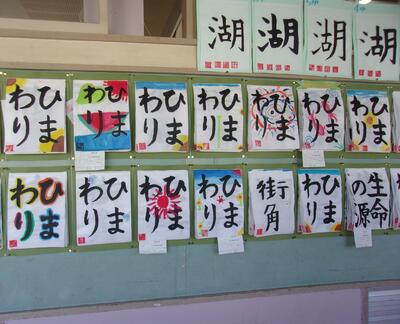 湖
湖
湖
湖
ひまわり
ひまわり
ひまわり
ひまわり
ひまわり
ひまわり
ひまわり
ひまわり
ひまわり
ひまわり
ひまわり
街角
ひまわり
生命の源